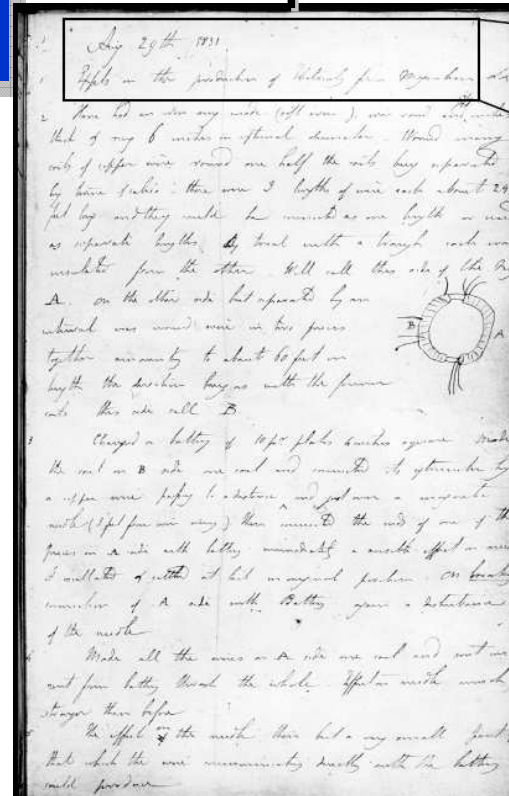 Aug 29th 1831
1 Expts on the production of Electricity from Magnetism
2 Have had an iron ring made (soft iron), iron round and inches
thick & ring 6 inches in external diameter. Wound many
coils of copper wire round one half the coils being separated
by twine & calico - there were 3 lengths of wire each about 24
feet long and they could be connected as one length or used
as separate lengths. By trial with a trough each was
insulated from the other. Will call this side of the ring
A. on the other side but separated by an
interval was wound wire in two pieces
together amounting to about 60 feet in
length the direction being as with the former
coils this side call B
B A
3 Charged a battery of 10 pr plates 4 inches square. Made
the coil on B side one coil and connected its extremities by
a copper wire passing to a distance and just over a magnetic
needle (3 feet from iron ring) then connected the ends of one of the
pieces on A side with battery immediately a sensible effect on needle
It oscillated & settled at last in original position. On breaking
connection of A side with Battery again a disturbance
of the needle
4 Made all the wires on A side one coil and sent
current from battery through the whole. Effect on needle much
stronger than before
5 The effect on the needle then but a very small part of
that which the wire communicating directly with the battery
could produce